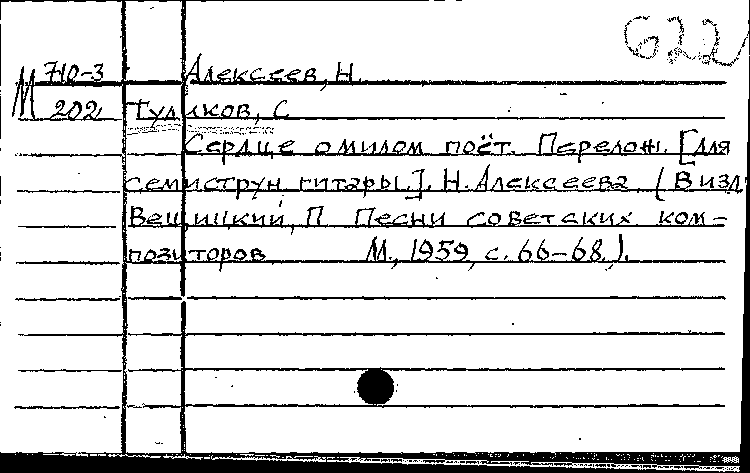 622
М 710-3 Алексеев, Н.
202 Туликов, С
Сердце о милом поёт. Перелож. [для
семиструн. гитары.]. Н. Алексеева. (В изд.
Вещицкий, П. Песни советских ком-
позиторов М., 1959, с. 66-68.).